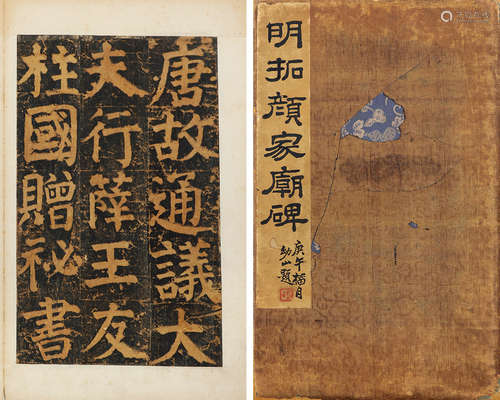 唐故通議大
夫行薛王友
柱國贈祕書
明拓顏家廟碑
庚午
題